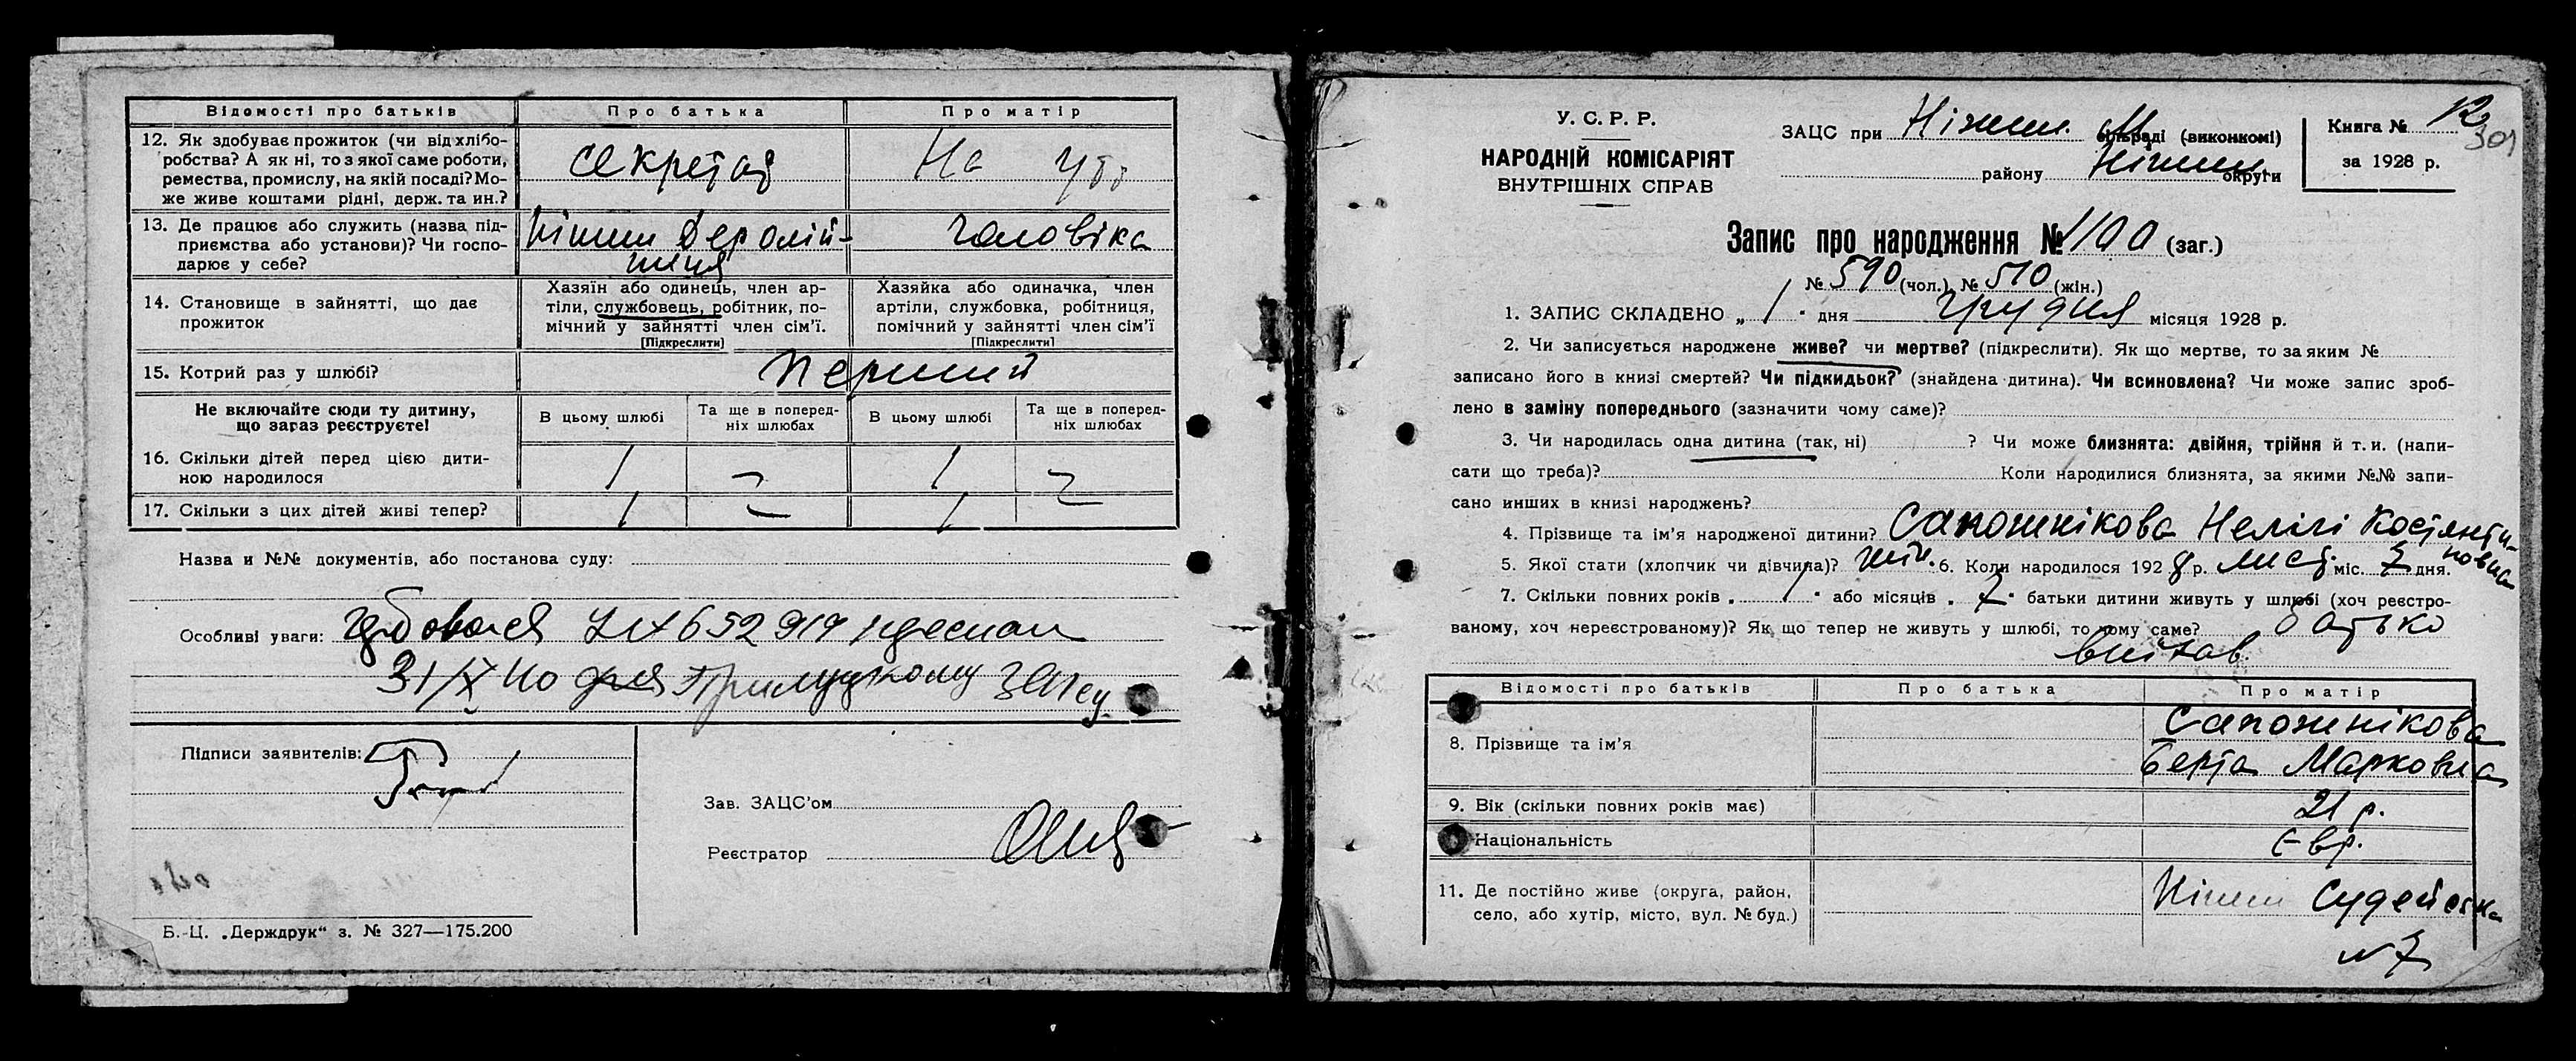 Відомості про батьків Про батька Про матір
12. Як здобуває прожиток (чи від хлібо-
робства? А як ні, то з якої саме роботи,
ремества, промислу, на якій посаді? Мо-
же живе коштами рідні, держ. та ин.?
секретар На утр
13. Де працює або служить (назва під-
приємства або установи)? Чи госпо-
дарює у себе?
Ніжин чоловіка
14. Становище в зайнятті, що дає
прожиток
Хазяїн або одинець, член ар-
тіли, службовець, робітник, по-
мічний у зайнятті член сім'ї.
[Підкреслити]
Хазяйка або одиначка, член
артіли, службовка, робітниця,
помічний у зайнятті член сім'ї
[Підкреслити]
15. Котрий раз у шлюбі? перший
Не включайте сюди ту дитину,
що зараз реєструєте!
В цьому шлюбі Та ще в поперед-
ніх шлюбах В цьому шлюбі Та ще в поперед-
ніх шлюбах
16. Скільки дітей перед цією дити-
ною народилося 1 – 1 –
17. Скільки з цих дітей живі тепер? 1 – 1 –
Назва и №№ документів, або постанова суду:
Особливі уваги: 652919
31/X 40 для Прилуцкому Загсу
Підписи заявителів:
Зав. ЗАЦС'ом
Реєстратор
Б.-Ц. „Держдрук“ з. № 327—175.200
У. С. Р. Р.
НАРОДНІЙ КОМІСАРІЯТ
ВНУТРІШНІХ СПРАВ
ЗАЦС при Ніжин. М сільраді (виконкомі)
району Ніжин округи
Книга № 12
301
за 1928 р.
Запис про народження № 1100 (заг.)
№ 590 (чол.), № 510 (жін.)
1. ЗАПИС СКЛАДЕНО „ 1 “ дня грудня місяця 1928 р.
2. Чи записується народжене живе? чи мертве? (підкреслити). Як що мертве, то за яким №
записано його в книзі смертей? Чи підкидьок? (знайдена дитина). Чи всиновлена? Чи може запис зроб-
лено в заміну попереднього (зазначити чому саме)?
3. Чи народилась одна дитина (так, ні) ? Чи може близнята: двійня, трійня й т. и. (напи-
сати що треба)? Коли народилися близнята, за якими №№ запи-
сано инших в книзі народжень?
4. Прізвище та ім'я народженої дитини? Сапожнікова Нелілі Костянти-
новна
5. Якої стати (хлопчик чи дівчина)? жін. 6. Коли народилося 1928 р. лист. міс. 7 дня.
7. Скільки повних років „ 1 “ або місяців „ 7 “ батьки дитини живуть у шлюбі (хоч реєстро-
ваному, хоч нереєстрованому)? Як що тепер не живуть у шлюбі, то чому саме? батько
Відомості про батьків Про батька Про матір
8. Прізвище та ім'я Сапожнікова
Берта Марковна
9. Вік (скільки повних років має) 21 р.
Національність Євр.
11. Де постійно живе (округа, район,
село, або хутір, місто, вул. № буд.)
Ніжин Судейська
№ 7